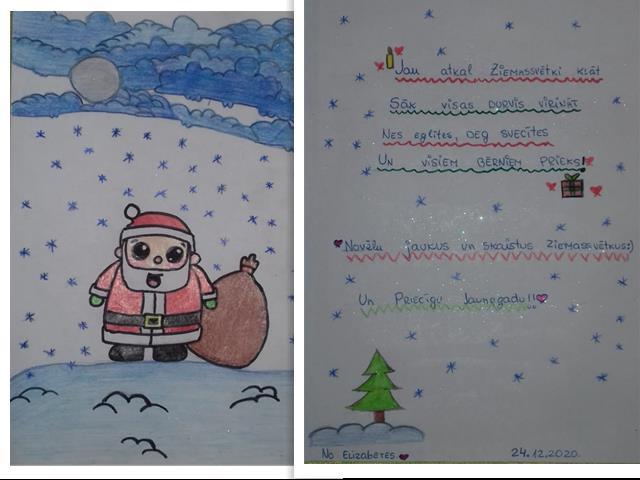 Jau atkal Ziemassvētki klāt
Sāk visas durvis virināt
Nes eglītes, deg svecītes
Un visiem bērniem prieks!
Novēlu jaukus un skaistus Ziemassvētkus:)
Un Priecīgu Jaungadu!!
No Elizabetes
24.12.2020.